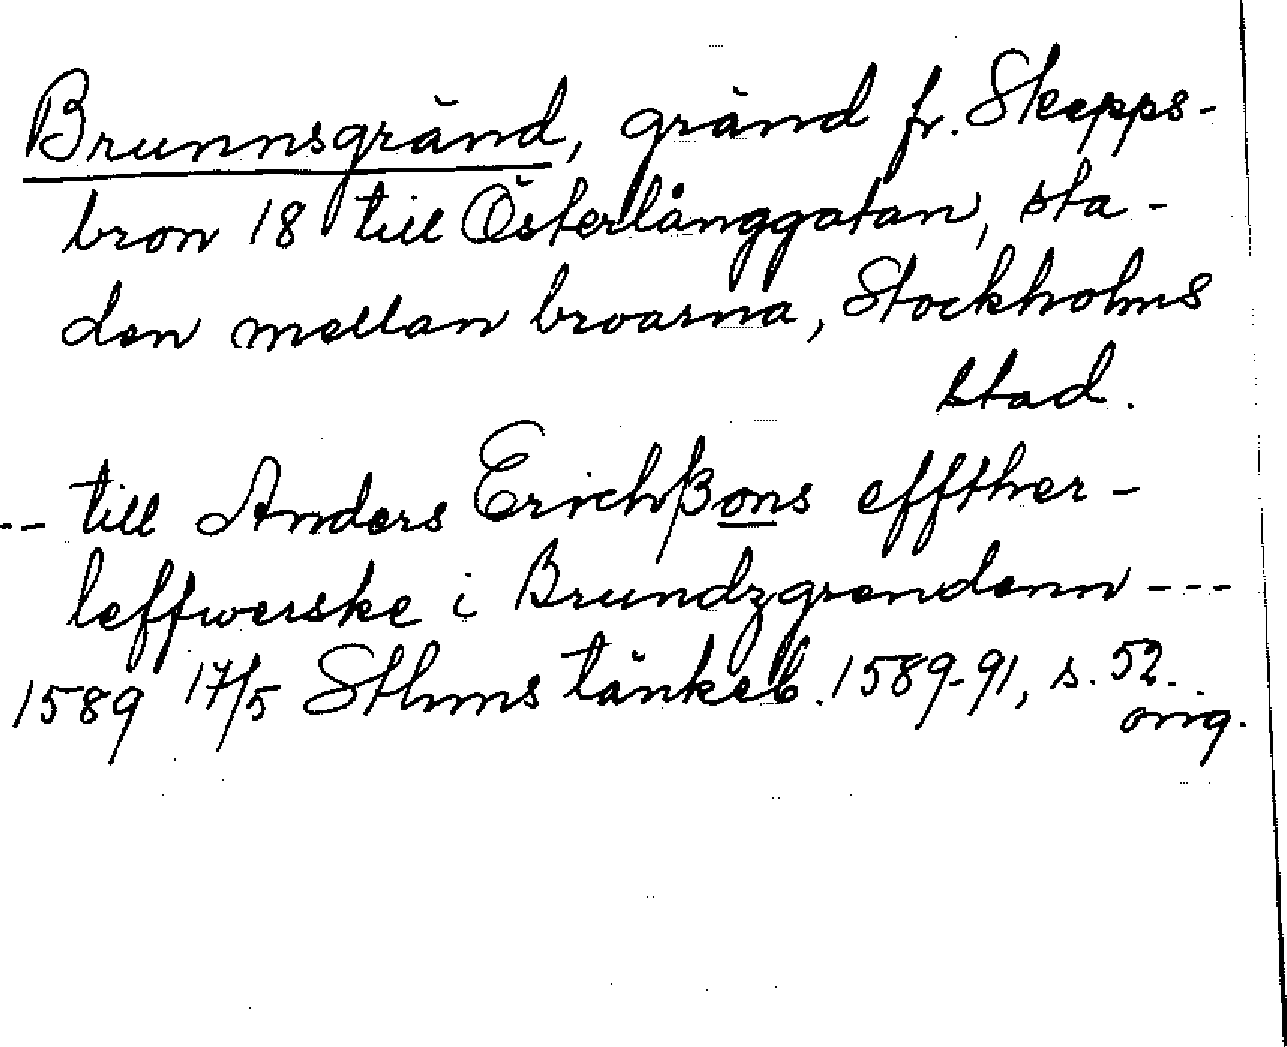 Brunnsgränd, gränd fr. Skepps-
bron 18 till Österlånggatan, sta-
den mellan broarna, Stockholms
stad.
-- till Anders Erichßons effther-
leffwerske i Brundzgrendenn ---
1589 17/5 Sthms tänkeb. 1589-91, s. 52.
orig.